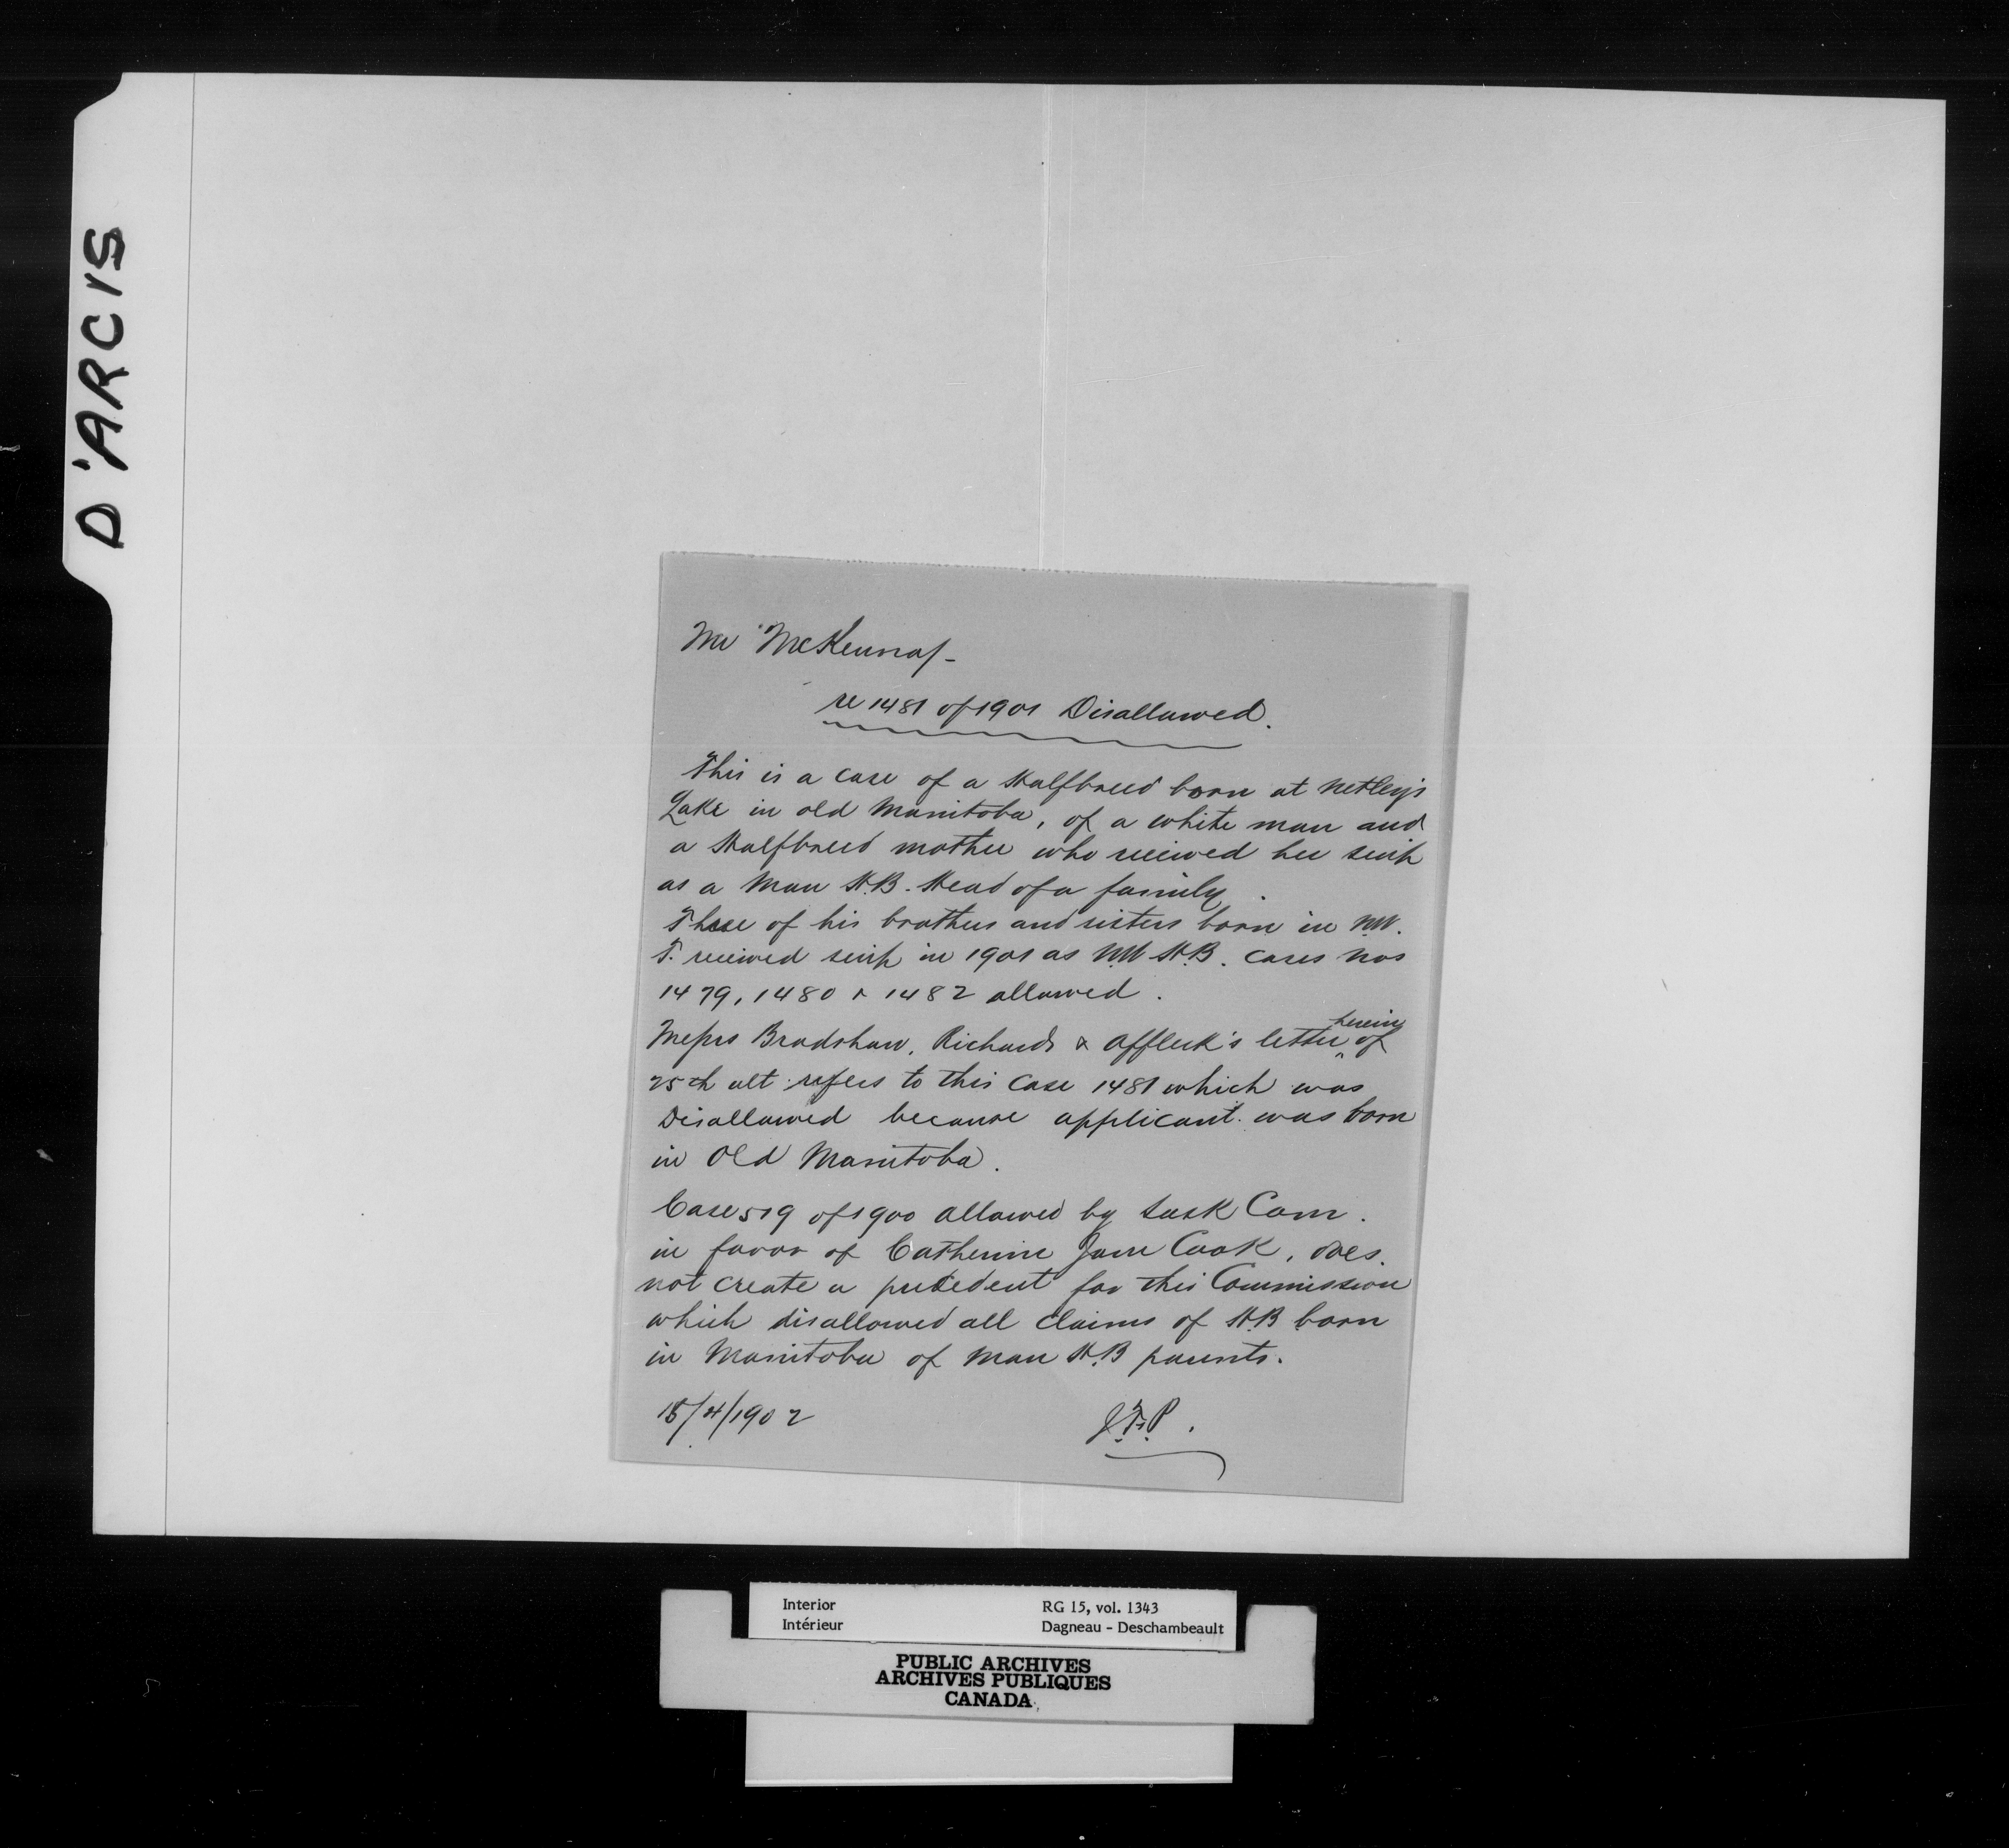 D'ARCIS
Mr McKenna/-
re 1481 of 1901 Disallowed.
This is a case of a Halfbreed born at Netley's
Lake in old Manitoba, of a white man and
a Halfbreed mother who received her scrip
as a Man H.B. Head of a family.
Three of his brothers and sisters born in N.W.
T. received scrip in 1901 as N.W H.B. cases Nos
1479, 1480 & 1482 allowed.
herein
Messrs Bradshaw, Richards & Affleck's letter ^ of
25th ult refers to this case 1481 which was
Disallowed because applicant was born
in Old Manitoba.
Case 519 of 1900 allowed by Sask Com.
in favor of Catherine Jane Cook, does
not create a precedent for this Commission
which disallowed all claims of H.B born
in Manitoba of Man H.B parents.
15/4/1902 J.F.P.
Interior RG 15, vol. 1343
Intérieur Dagneau - Deschambeault
PUBLIC ARCHIVES
ARCHIVES PUBLIQUES
CANADA